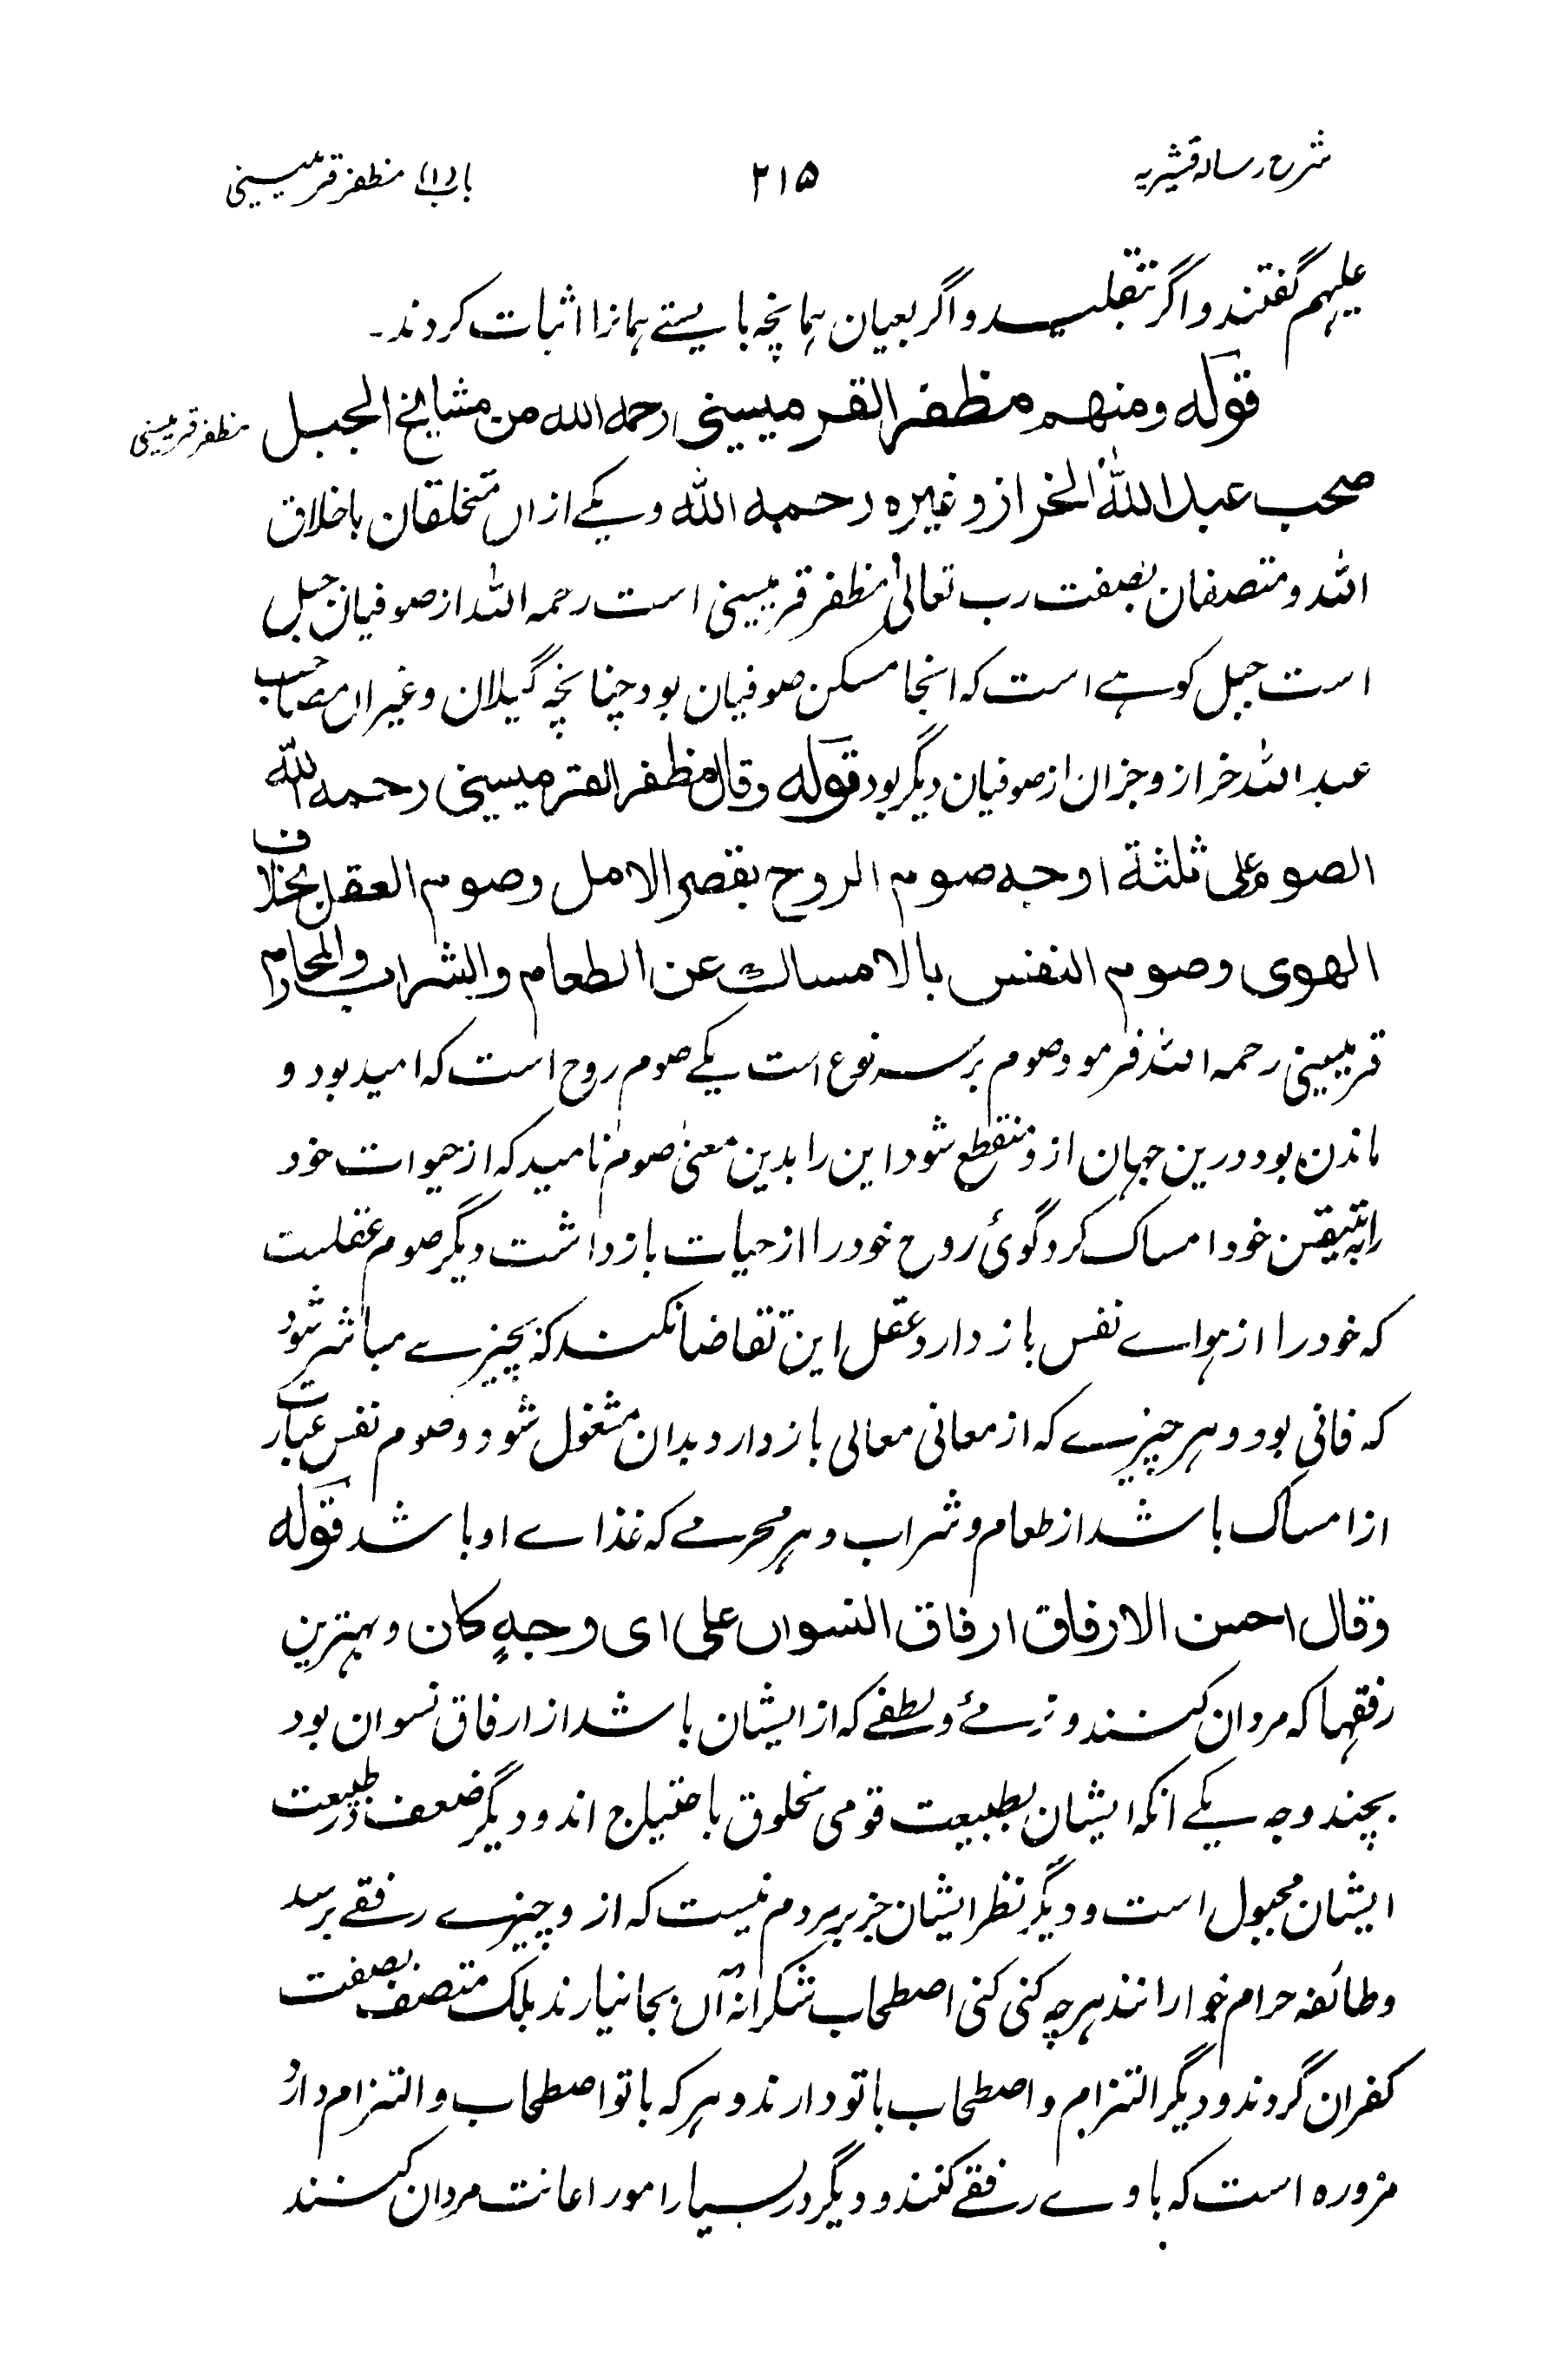 شرح رسالہ قشیریہ
۲۱۵
باب (۱) مظفر قرمیسینی
علیہم گفتند و اگر بتقلید و اگر بعیان ہمانچہ بایستے ہمانرا اثبات کردند۔
قولہ ومنہم مظفر القرمیسینی رحمہ اللہ من مشایخ الجبل
مظفر قرمیسینی
صحب عبد اللہ الخراز وغیرہ رحمہ اللہ ویکے ازاں متخلقان باخلاق
اللہ و متصفان بصفت رب تعالیٰ مظفر قرمیسینی است رحمہ اللہ از صوفیان جبل
است جبل کوہے است کہ انجا مسکن صوفیان بود چنانچہ گیلان و غیران مصاحب
عبد اللہ خراز و جزان از صوفیان دیگر بود قولہ وقال مظفر القرمیسینی رحمہ اللہ
الصوم علی ثلثۃ اوجہ صوم الروح بقصر الامل وصوم العقل بخلاف
الھوی وصوم النفس بالامساک عن الطعام والشراب والمحارم
قرمیسینی رحمہ اللہ فرمود صوم بر سہ نوع است یکے صوم روح است کہ امید بود و
ماندن بود درین جہان ازو منقطع شود این را بدین معنیٰ صوم نامید کہ از حیوات خود
را بہ تیقن خود امساک کرد گوئی روح خود را از حیات بازداشت دیگر صوم عقلیت
کہ خود را از ہواے نفس باز دارد عقل این تقاضا نکند کہ بچیزے مباشر شود
کہ فانی بود و ہر چیزے کہ از معانی معالی باز دارد بدان مشغول شود و صوم نفس عبارت
از امساک باشد از طعام و شراب و ہر محرمے کہ غذاے او باشد قولہ
وقال احسن الارفاق ارفاق النسوان علی ای وجہٍ کان و بہترین
رفقہا کہ مردان کنند و نرمئے و لطفے کہ از ایشان باشد از ارفاق نسوان بود
بچند وجہ یکے انکہ ایشان بطبیعت قومی مخلوق باحتیاج اند و دیگر ضعف در طبیعت
ایشان مجبول است و دیگر نظر ایشان جز بر مردم نیست کہ ازو چیزے رفقے برسد
و طائفہ حرام خوارانند ہرچہ کنی کنی اصطحاب شکرانۂ آں بجا نیارند بلکہ متصف بصفت
کفران گردند و دیگر التزام و اصطحاب باتو دارند و ہر کہ باتو اصطحاب و التزام دارد
مزوره است کہ باوے رفقے کنند و دیگر در بسیار امور اعانت مردان کنند